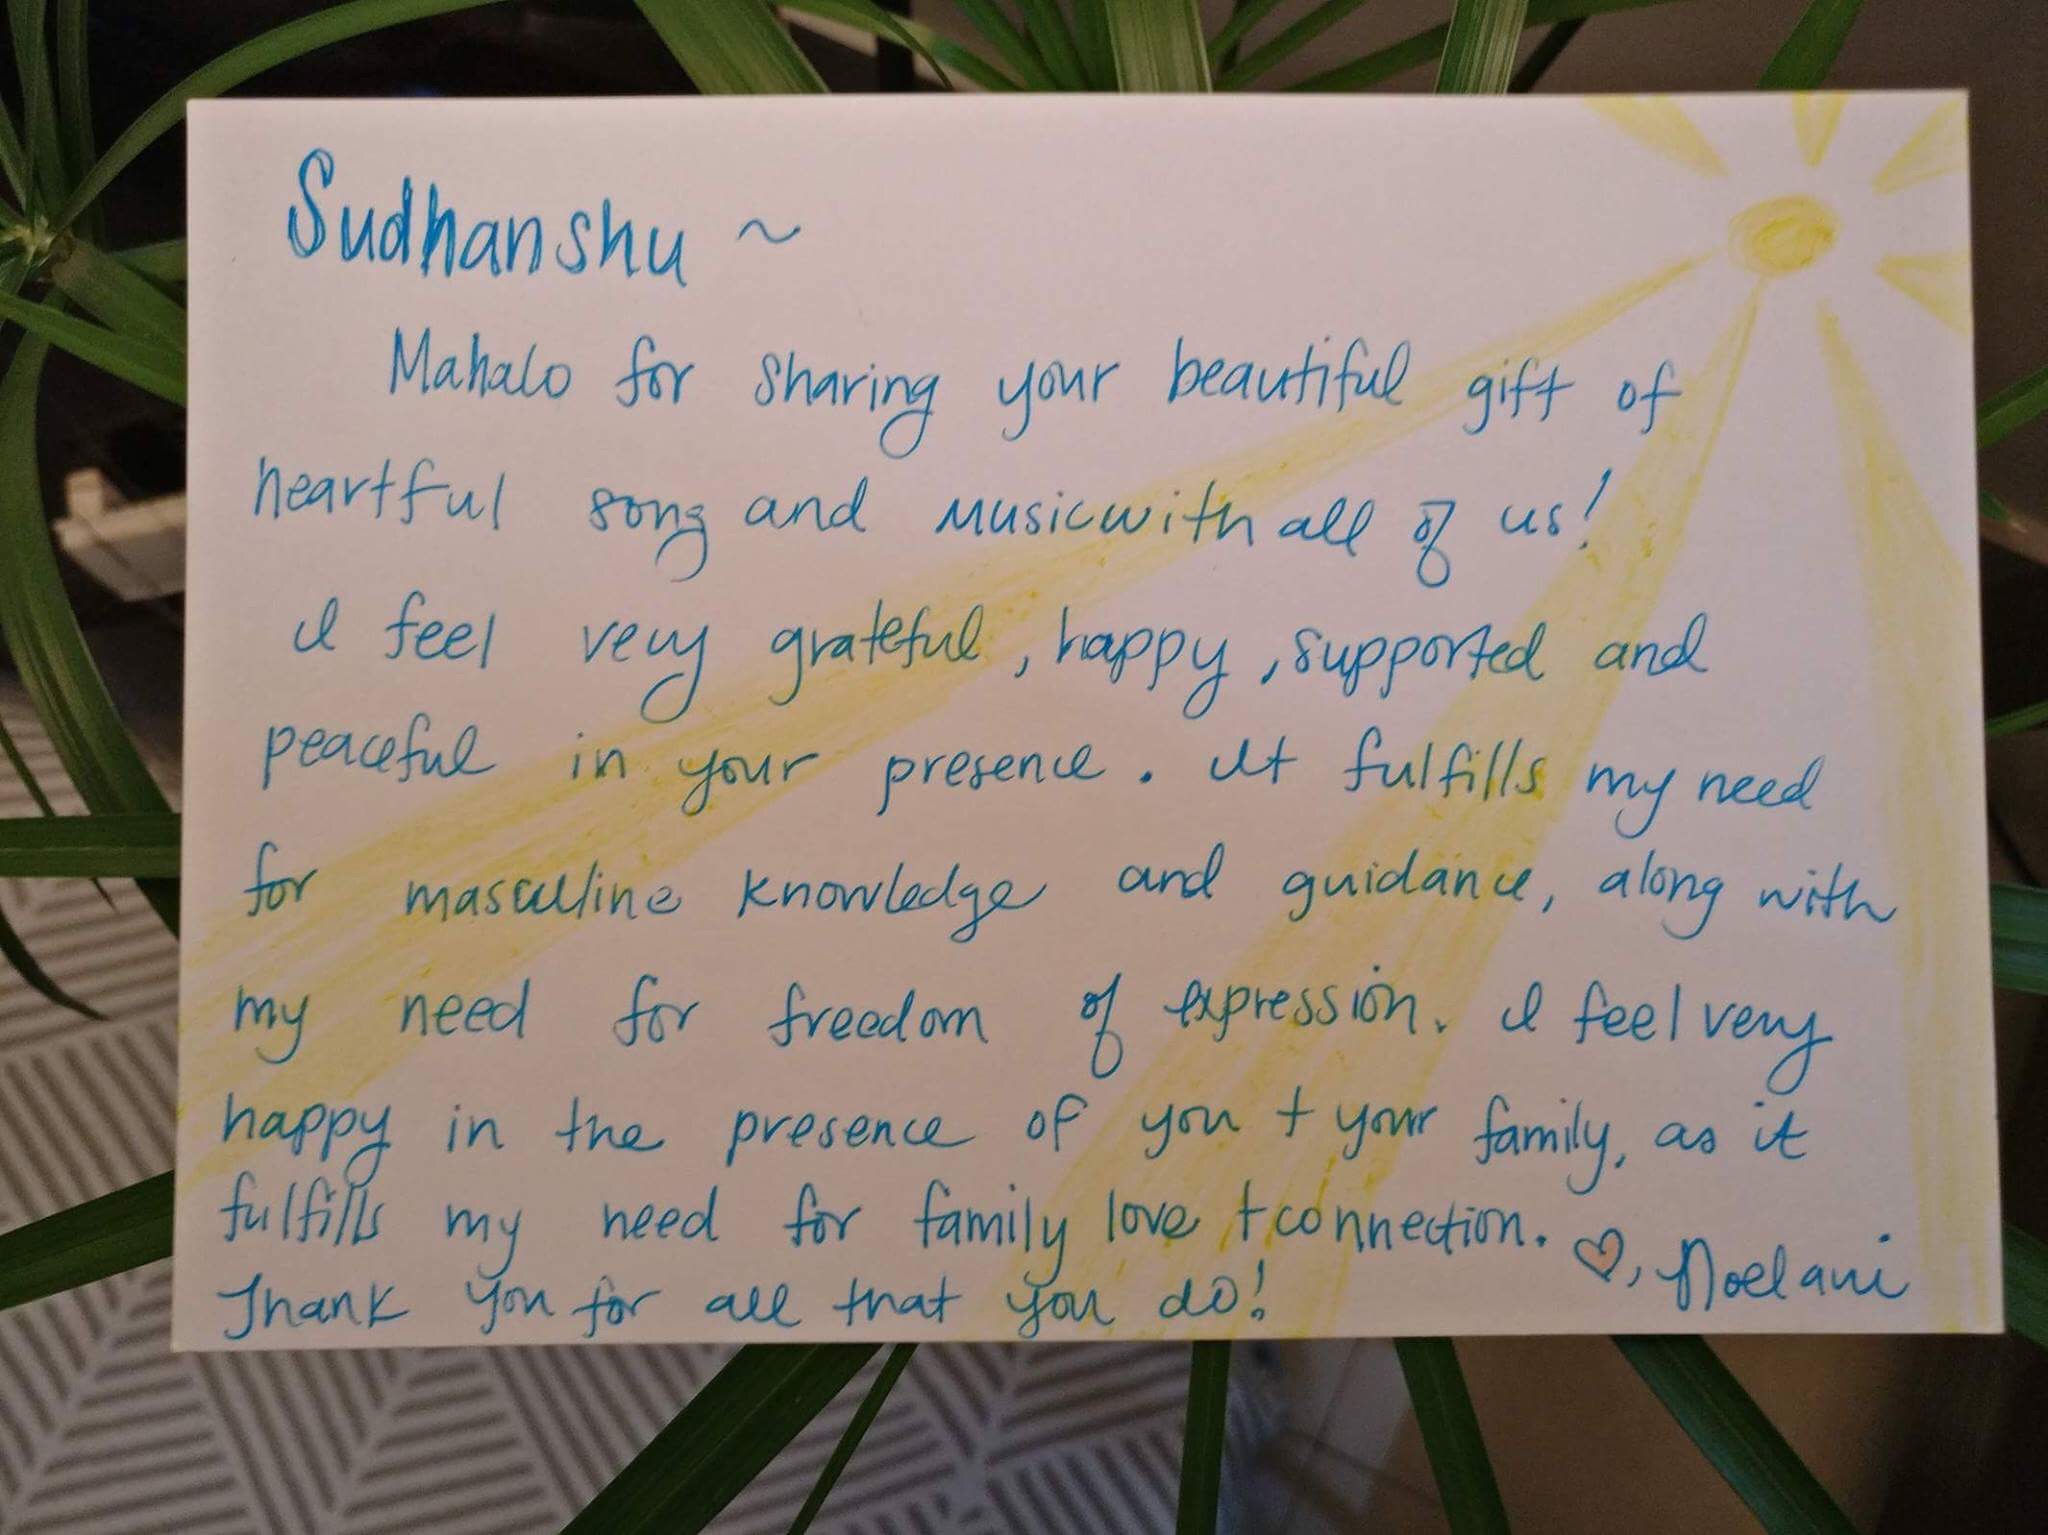 Sudhanshu ~
Mahalo for sharing your beautiful gift of
heartful song and music with all of us!
I feel very grateful, happy, supported and
peaceful in your presence. It fulfills my need
for masculine knowledge and guidance, along with
my need for freedom of expression. I feel very
happy in the presence of you + your family, as it
fulfills my need for family love + connection.
Thank you for all that you do! ♡, Noelani